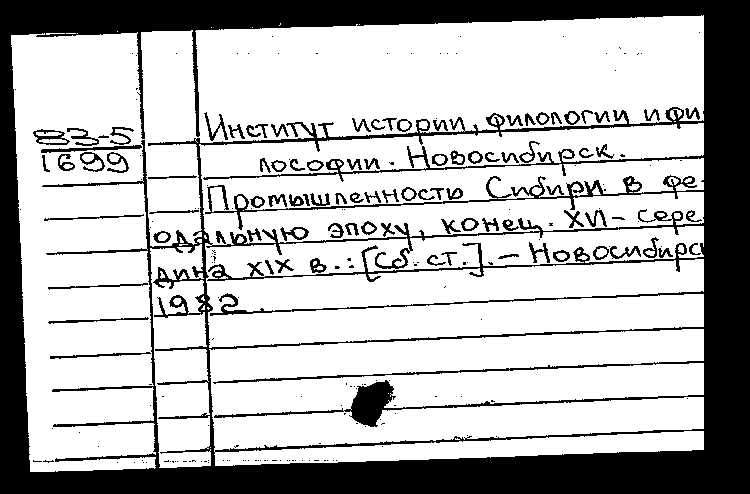 83-5
1699
Институт истории, филологии и фи-
лософии. Новосибирск.
Промышленность Сибири в фе-
одальную эпоху, конец. XVI - сере-
дина XIX в.: [Сб. ст.]. - Новосибирск
1982.